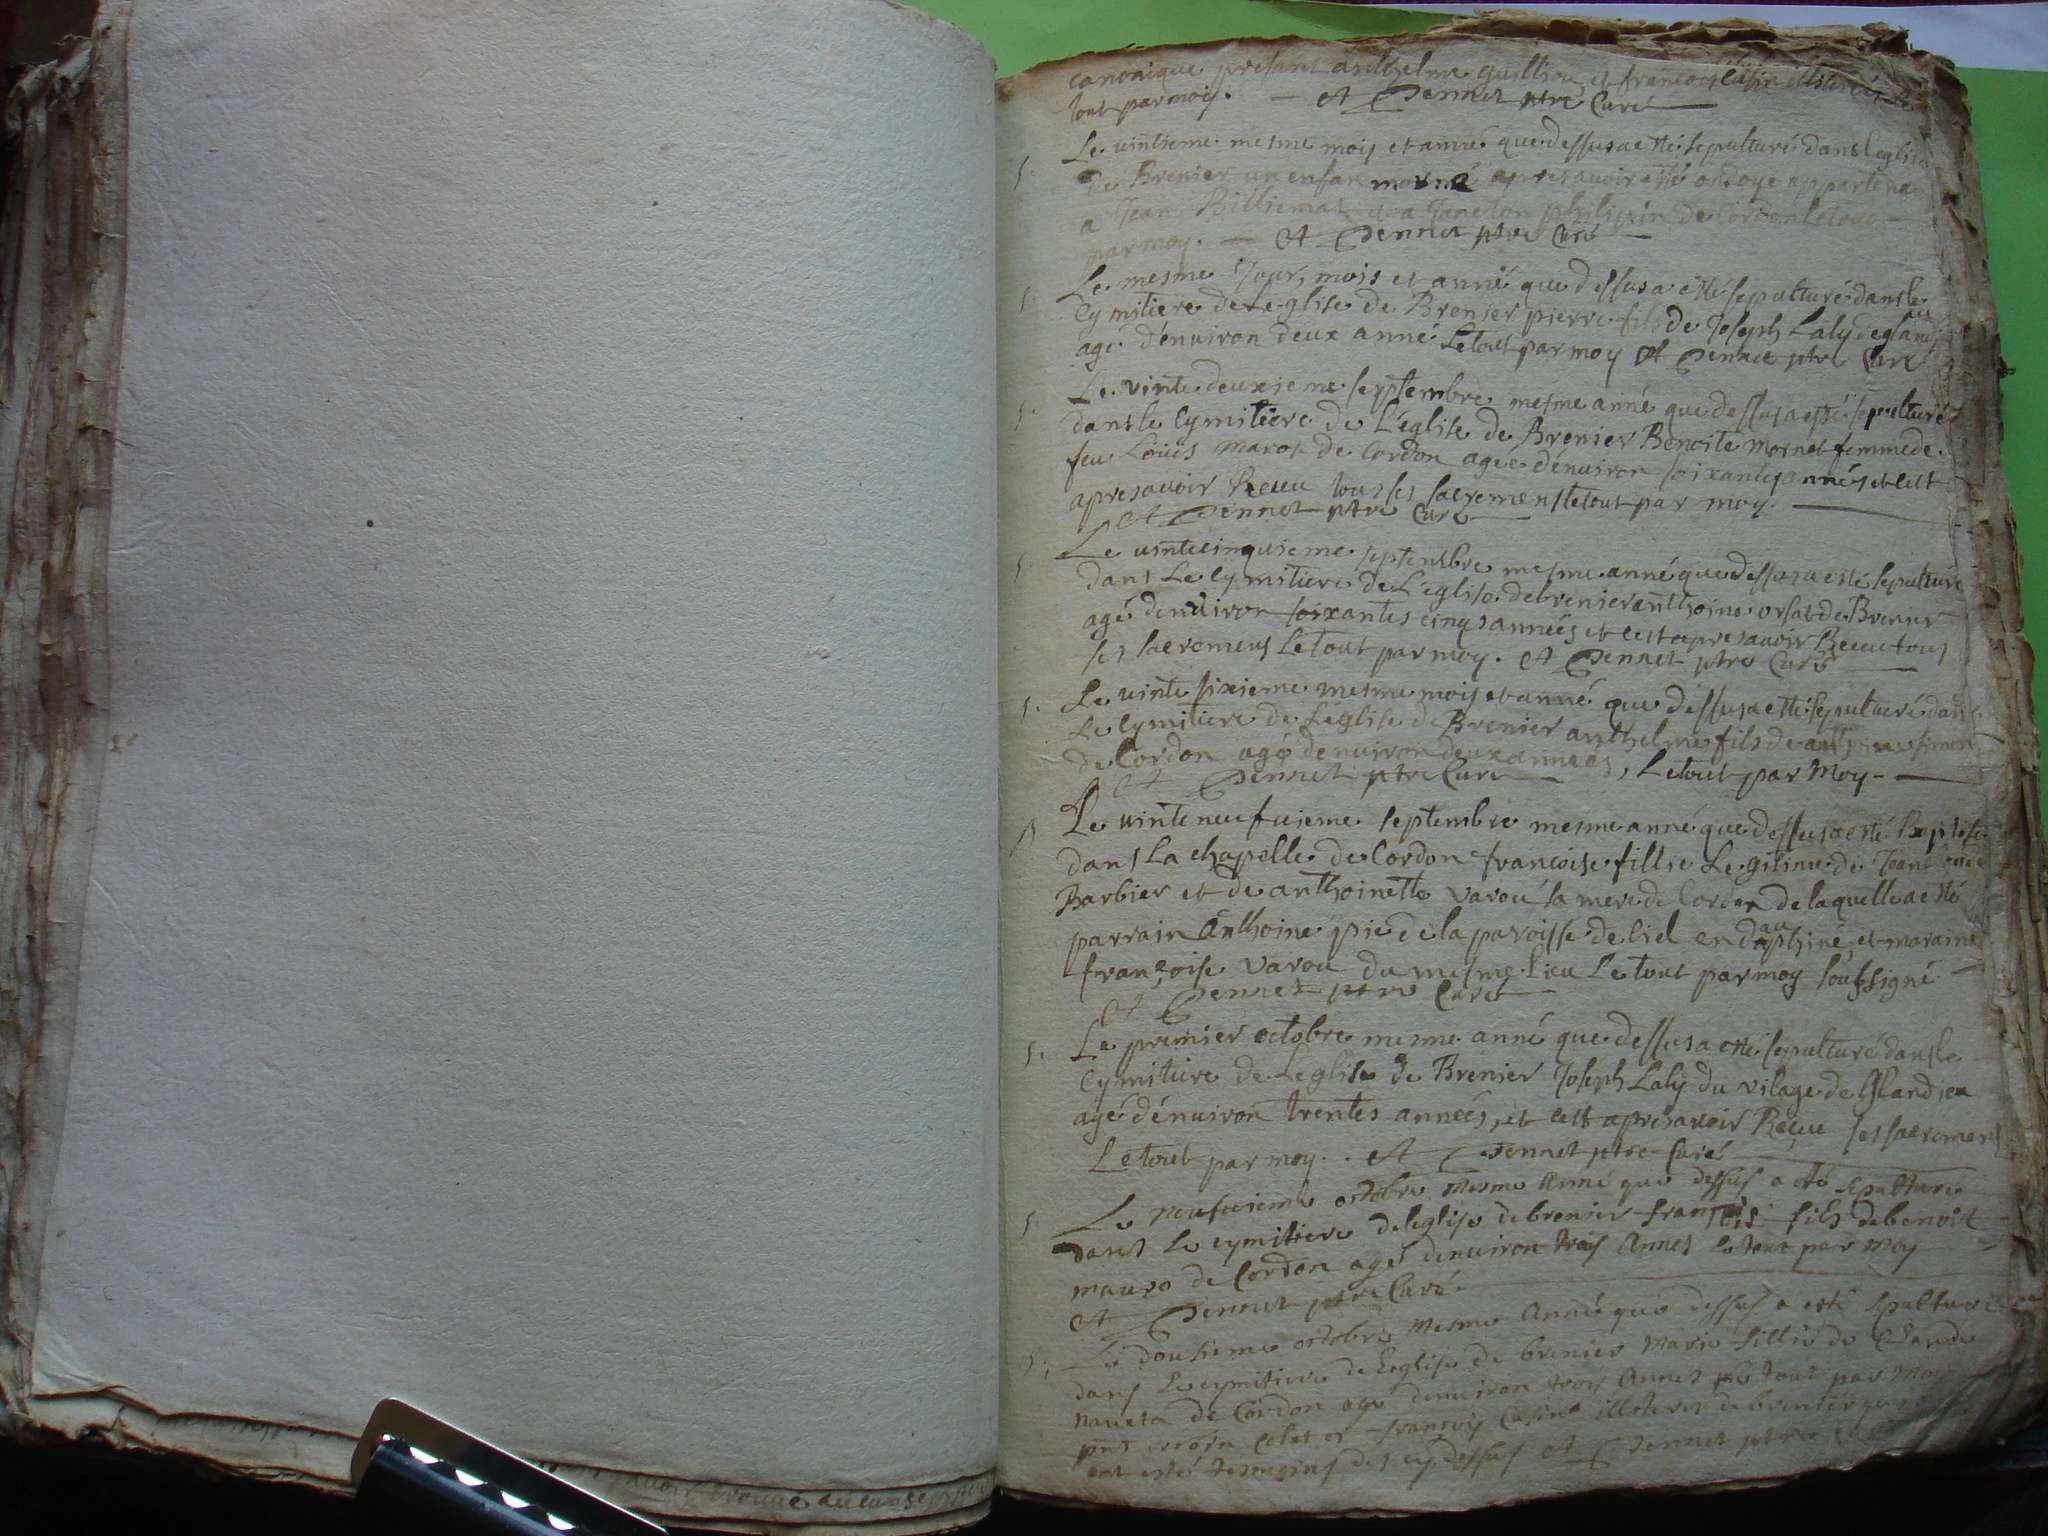 canonique presant anthelme guilliou et francois cusin
tout par moy. — et Pennet ptre Curé —
S. Le vintieme mesme mois et anné que dessus a esté sepulturé dans leglise
de Brenier un enfan apres avoir esté ondoyé appartena
a Jean Billiemat et a Janeton philipin de Cordon Le tout
par moy. — et Pennet ptre Curé —
S. Le mesme Jour, mois et anné que dessus a esté sepulturé dans le
Cymitiere de Leglise de Brenier pierre fils de Joseph Laly de
agé d'enuiron deux anné Le tout par moy et Pennet ptre Curé
S. Le vinte deuxieme septembre mesme anné que dessus a esté sepulturé
dans le Cymitiere de L'église de Brenier Benoite mornet femme de
feu Loüis marot de Cordon agée d'enuiron soixantes années et cest
apres avoir Receu tous ses sacremens le tout par moy. —
et Pennet ptre Curé —
S. Le vintecinquieme septembre mesme anné que dessus a esté sepulturé
dans Le Cymitiere de L'église de brenier anthoine orsat de Brenier
agé denuiron soixantes cinqs années et cest apres avoir Receu tous
ses sacremens Le tout par moy. et Pennet ptre Curé
S. Le vinte sixieme mesme mois et anné que dessus a esté sepulturé dans
Le Cymitiere de L'église de Brenier anthelme fils de
de Cordon agé denuiron deux années, Le tout par Moy —
et Pennet ptre Curé —
B Le vinte neufuieme septembre mesme anné que dessus a esté Baptisé
dans La chapelle de Cordon francoise fillie Legitime de
Barbier et de anthoinette Varou sa mere de Cordon de laquelle a esté
parrain Anthoine pie de la paroisse de Ciel en dauphiné, et maraine
françoise Varou du mesme Lieu Le tout par moy soubsigné —
et Pennet ptre Curé —
S. Le premier octobre mesme anné que dessus a esté sepulturé dans le
Cymitiere de Leglise de Brenier Joseph Laly du vilage de Glandieu
agé d'énuiron trentes années, et cest apres avoir Receu ses sacremens
Le tout par moy. et Pennet ptre Curé
S. Le neufuieme octobre mesme Anné que dessus a esté sepulturé
dans le cymitiere de leglise de brenier françois fils de benoit
mauro de Cordon agé denuiron trois Annes le tout par moy
et Pennet ptre Curé.
S. Le douzieme octobre mesme Anné que dessus a esté sepulturé
dans le cymitiere de Leglise de brenier Marie fillie de Claude
de Cordon agé denuiron trois Annes le tout par moy
et françois Cusin illiteres de brenier
ont esté temoins des cy dessus et Pennet ptre